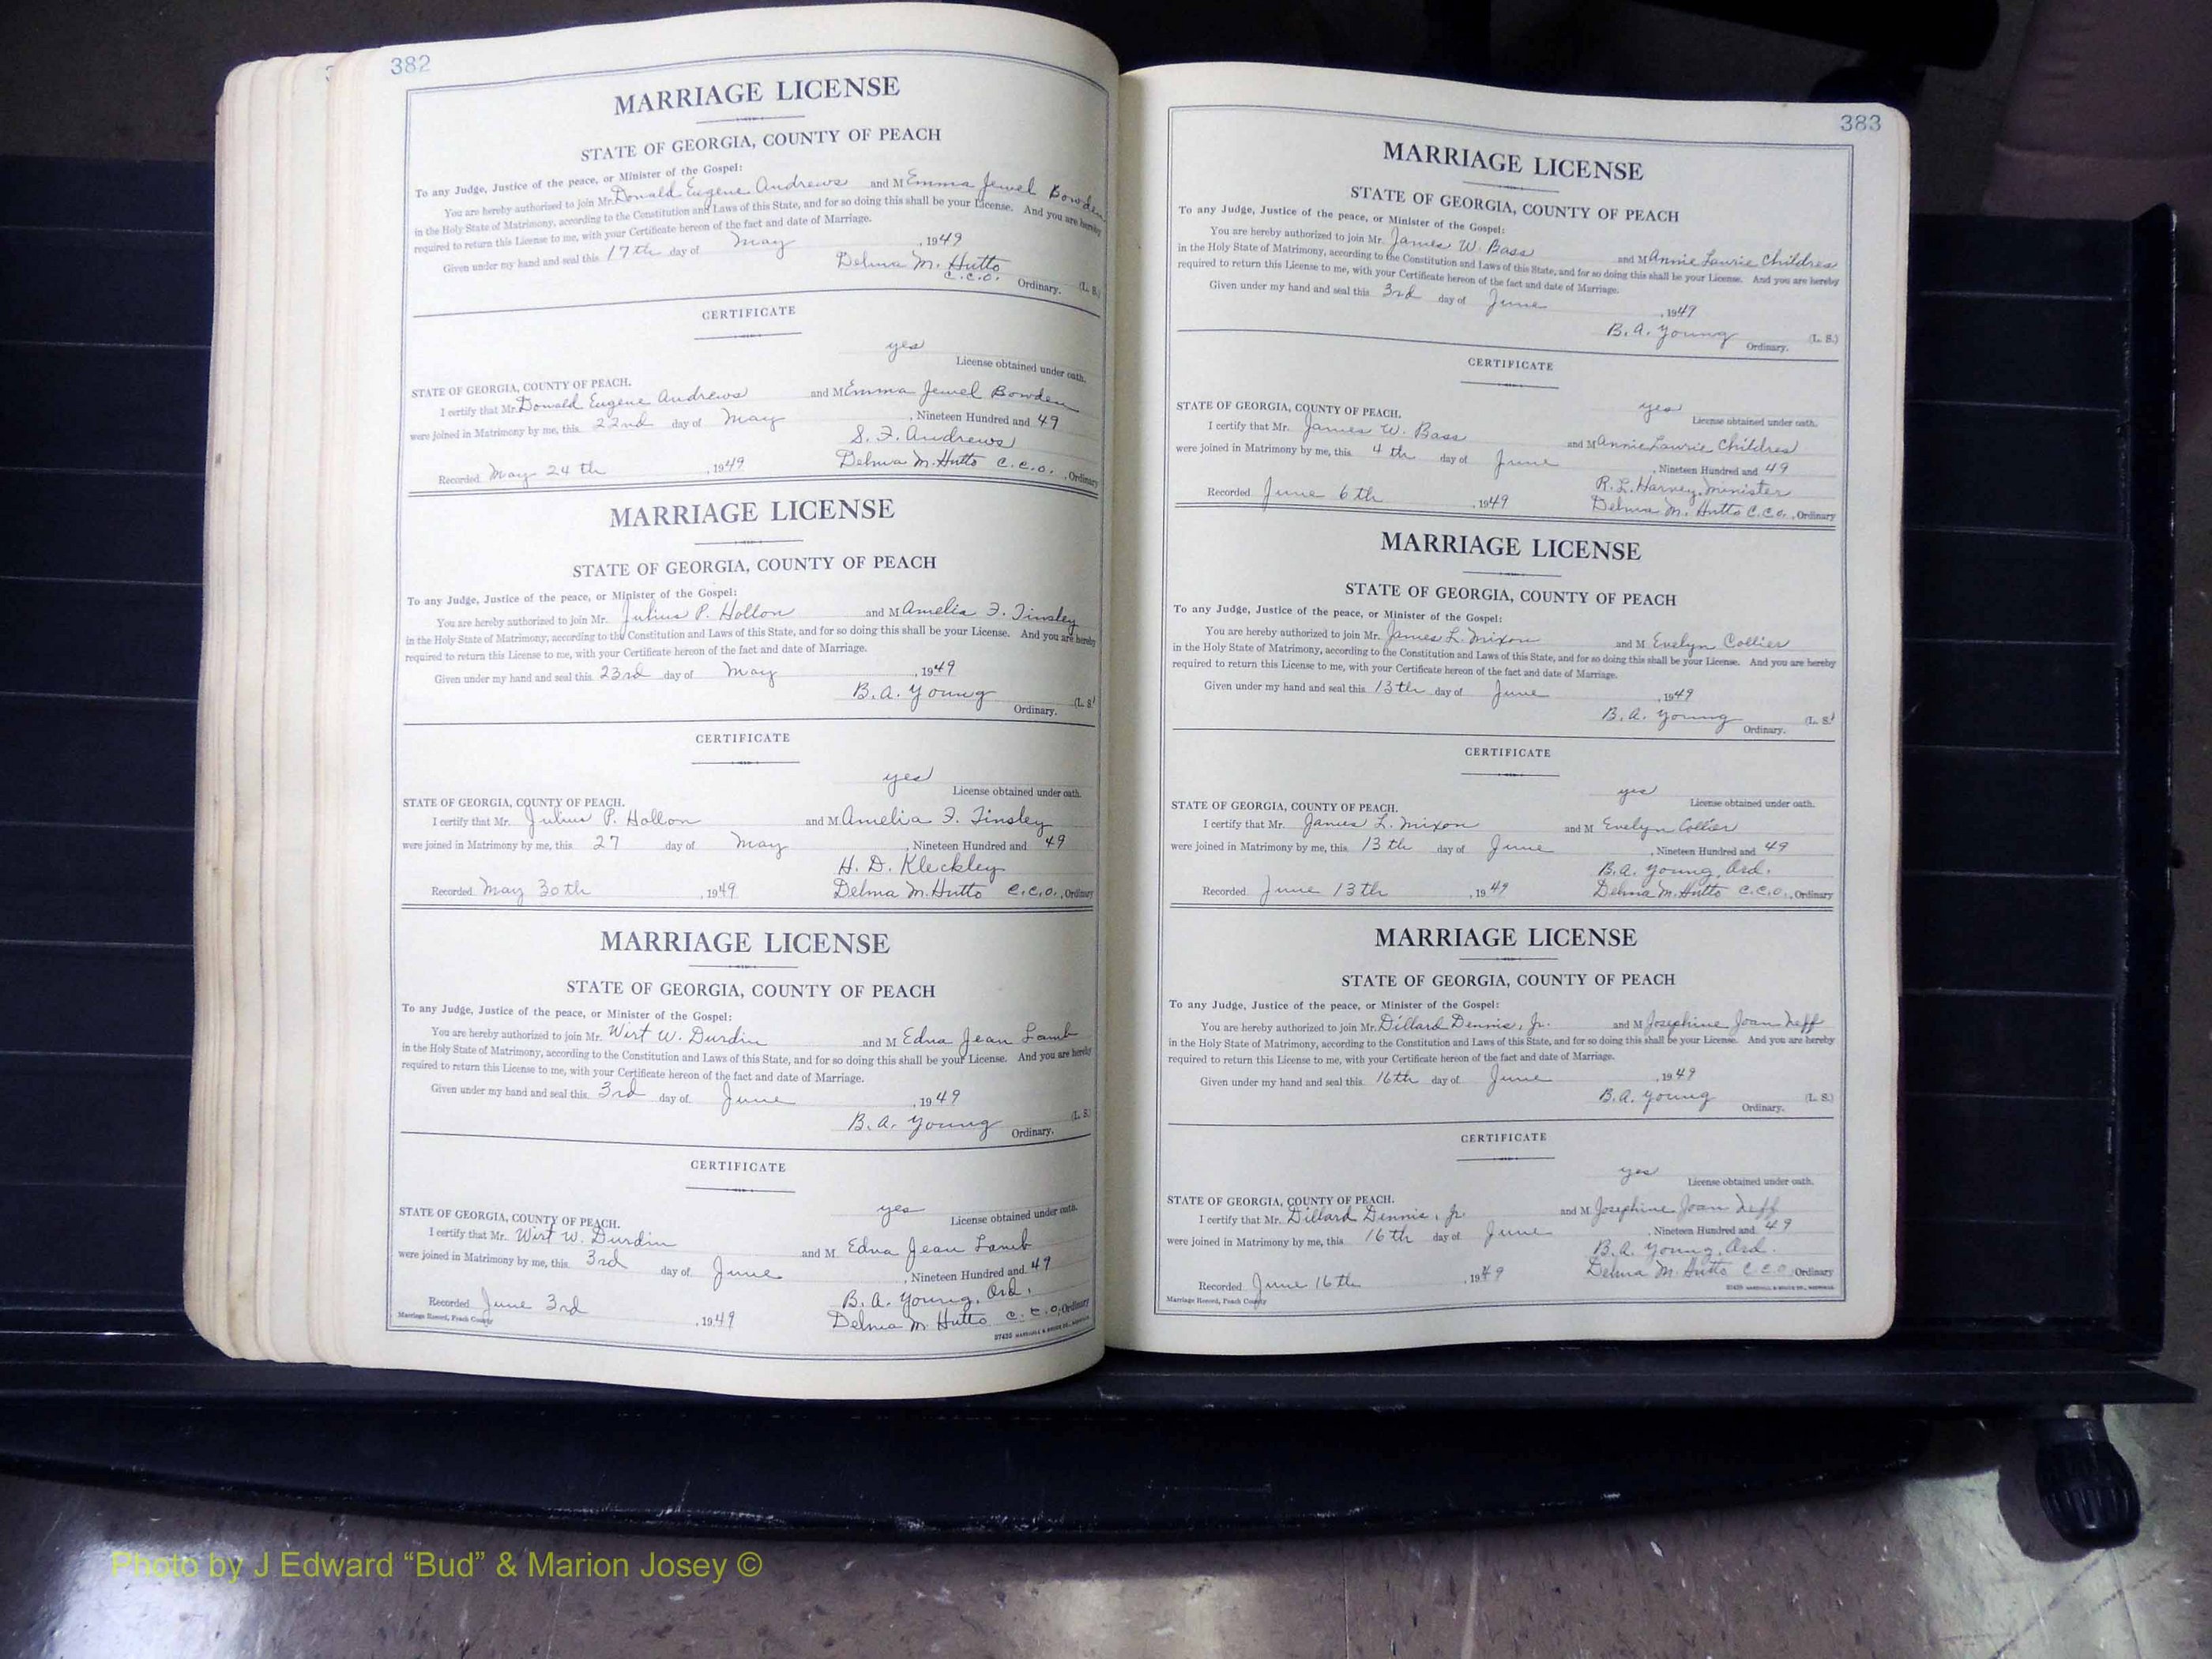 382
MARRIAGE LICENSE
STATE OF GEORGIA, COUNTY OF PEACH
To any Judge, Justice of the peace, or Minister of the Gospel:
You are hereby authorized to join Mr. Donald Eugene Andrews and M Emma Jewel Bowden
in the Holy State of Matrimony, according to the Constitution and Laws of this State, and for so doing this shall be your License. And you are hereby
required to return this License to me, with your Certificate hereon of the fact and date of Marriage.
Given under my hand and seal this 17th day of May, 1949
Delma M. Hutto
C.C.O. Ordinary. (L. S.)
CERTIFICATE
yes
License obtained under oath.
STATE OF GEORGIA, COUNTY OF PEACH.
I certify that Mr. Donald Eugene Andrews and M Emma Jewel Bowden
were joined in Matrimony by me, this 22nd day of May, Nineteen Hundred and 49
S. F. Andrews
Recorded May 24th, 1949 Delma M. Hutto C.C.O., Ordinary
MARRIAGE LICENSE
STATE OF GEORGIA, COUNTY OF PEACH
To any Judge, Justice of the peace, or Minister of the Gospel:
You are hereby authorized to join Mr. Julius P. Hollon and M Amelia F. Tinsley
in the Holy State of Matrimony, according to the Constitution and Laws of this State, and for so doing this shall be your License. And you are hereby
required to return this License to me, with your Certificate hereon of the fact and date of Marriage.
Given under my hand and seal this 23rd day of May, 1949
B. A. Young
Ordinary. (L. S.)
CERTIFICATE
yes
License obtained under oath.
STATE OF GEORGIA, COUNTY OF PEACH.
I certify that Mr. Julius P. Hollon and M Amelia F. Tinsley
were joined in Matrimony by me, this 27 day of May, Nineteen Hundred and 49
H. D. Kleckley
Recorded May 30th, 1949 Delma M. Hutto C.C.O., Ordinary
MARRIAGE LICENSE
STATE OF GEORGIA, COUNTY OF PEACH
To any Judge, Justice of the peace, or Minister of the Gospel:
You are hereby authorized to join Mr. Wirt W. Durdin and M Edna Jean Lamb
in the Holy State of Matrimony, according to the Constitution and Laws of this State, and for so doing this shall be your License. And you are hereby
required to return this License to me, with your Certificate hereon of the fact and date of Marriage.
Given under my hand and seal this 3rd day of June, 1949
B. A. Young Ordinary. (L. S.)
CERTIFICATE
yes
License obtained under oath.
STATE OF GEORGIA, COUNTY OF PEACH.
I certify that Mr. Wirt W. Durdin and M Edna Jean Lamb
were joined in Matrimony by me, this 3rd day of June, Nineteen Hundred and 49
B. A. Young, Ord.
Recorded June 3rd, 1949 Delma M. Hutto C.C.O., Ordinary
Marriage Record, Peach County
383
MARRIAGE LICENSE
STATE OF GEORGIA, COUNTY OF PEACH
To any Judge, Justice of the peace, or Minister of the Gospel:
You are hereby authorized to join Mr. James W. Bass and M Annie Laurie Childres
in the Holy State of Matrimony, according to the Constitution and Laws of this State, and for so doing this shall be your License. And you are hereby
required to return this License to me, with your Certificate hereon of the fact and date of Marriage.
Given under my hand and seal this 3rd day of June, 1949
B. A. Young Ordinary. (L. S.)
CERTIFICATE
yes
License obtained under oath.
STATE OF GEORGIA, COUNTY OF PEACH.
I certify that Mr. James W. Bass and M Annie Laurie Childres
were joined in Matrimony by me, this 4th day of June, Nineteen Hundred and 49
R. L. Harvey, Minister
Recorded June 6th, 1949 Delma M. Hutto C.C.O., Ordinary
MARRIAGE LICENSE
STATE OF GEORGIA, COUNTY OF PEACH
To any Judge, Justice of the peace, or Minister of the Gospel:
You are hereby authorized to join Mr. James L. Mixon and M Evelyn Collier
in the Holy State of Matrimony, according to the Constitution and Laws of this State, and for so doing this shall be your License. And you are hereby
required to return this License to me, with your Certificate hereon of the fact and date of Marriage.
Given under my hand and seal this 13th day of June, 1949
B. A. Young (L. S.)
Ordinary.
CERTIFICATE
yes
License obtained under oath.
STATE OF GEORGIA, COUNTY OF PEACH.
I certify that Mr. James L. Mixon and M Evelyn Collier
were joined in Matrimony by me, this 13th day of June, Nineteen Hundred and 49
B. A. Young, Ord.
Recorded June 13th, 1949 Delma M. Hutto C.C.O., Ordinary
MARRIAGE LICENSE
STATE OF GEORGIA, COUNTY OF PEACH
To any Judge, Justice of the peace, or Minister of the Gospel:
You are hereby authorized to join Mr. Dillard Dennis, Jr. and M Josephine Joan Neff
in the Holy State of Matrimony, according to the Constitution and Laws of this State, and for so doing this shall be your License. And you are hereby
required to return this License to me, with your Certificate hereon of the fact and date of Marriage.
Given under my hand and seal this 16th day of June, 1949
B. A. Young (L. S.)
Ordinary.
CERTIFICATE
yes
License obtained under oath.
STATE OF GEORGIA, COUNTY OF PEACH.
I certify that Mr. Dillard Dennis, Jr. and M Josephine Joan Neff
were joined in Matrimony by me, this 16th day of June, Nineteen Hundred and 49
B. A. Young, Ord.
Recorded June 16th, 1949 Delma M. Hutto C.C.O. Ordinary
Marriage Record, Peach County
Photo by J Edward “Bud” & Marion Josey ©